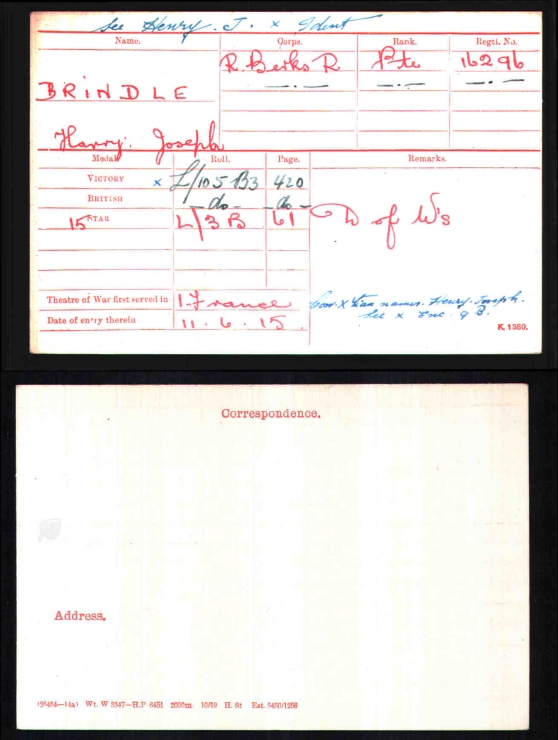 See Henry. J. x Ident
Name. Corps. Rank. Regtl. No.
R. Berks R Pte 16296
BRINDLE — . — — . — — . —
Harry. Joseph
Medal. Roll. Page. Remarks.
VICTORY x L/105 B3 420
BRITISH - do - - do -
15 STAR L/3 B 61 D of W's
Theatre of War first served in 1. France
Date of entry therein 11. 6. 15.
Corr. X names. Henry. Joseph.
See x Enc. 9 B.
K. 1380.
Correspondence.
Address.
(26464—14a) Wt. W 3347—H.P 6451 2000m. 10/19 H. St Est. 5450/1256